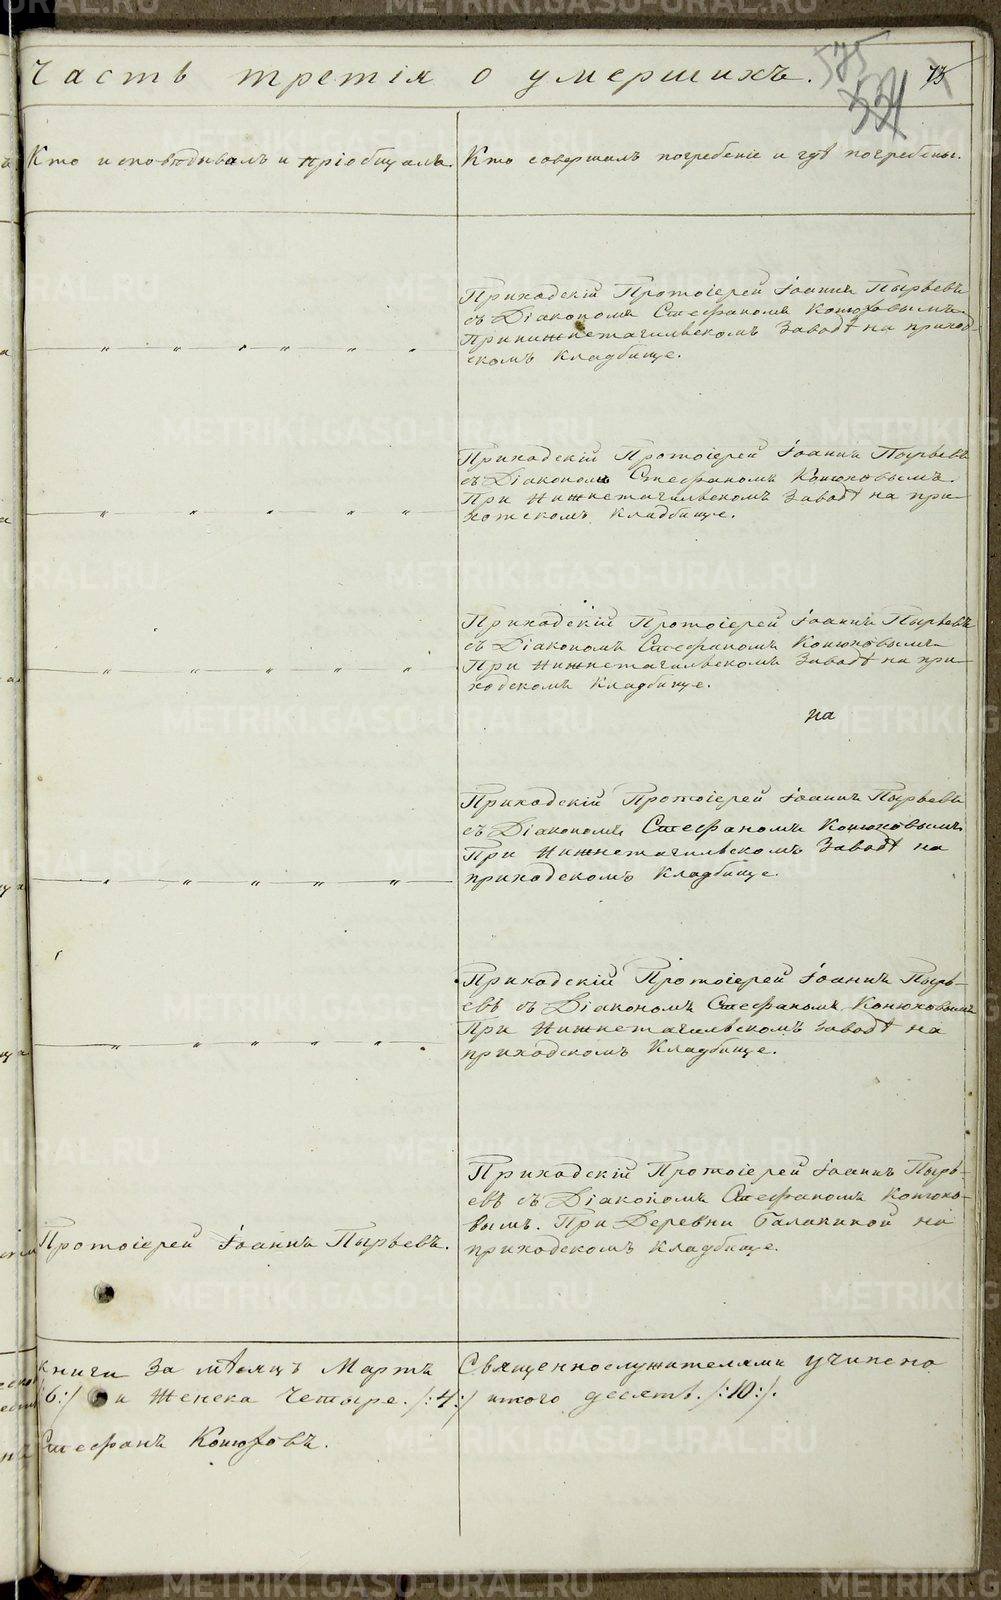 Часть третія о умершихъ.
575
73
Кто исповѣдывалъ и пріобщалъ.
Кто совершалъ погребеніе и гдѣ погребены.
Приходскій Протоіерей Іоаннъ Пырьевъ
съ Діакономъ Стефаномъ Конюховымъ
При нижнетагильскомъ Заводѣ на приход-
скомъ Кладбище.
Приходскій Протоіерей Іоаннъ Пырьевъ
съ Діакономъ Стефаномъ Конюховымъ.
При Нижнетагильскомъ Заводѣ на при-
хотскомъ Кладбище.
Приходскій Протоіерей Іоаннъ Пырьевъ
съ Діакономъ Стефаномъ Конюховымъ
При Нижнетагильскомъ Заводѣ на при-
ходскомъ Кладбище.
на
Приходскій Протоіерей Іоаннъ Пырьевъ
съ Діакономъ Стефаномъ Конюховымъ
При Нижнетагильскомъ Заводѣ на
приходскомъ Кладбище.
Приходскій Протоіерей Іоаннъ Пырь-
евъ съ Діакономъ Стефаномъ Конюховымъ
При Нижнетагильскомъ Заводѣ на
приходскомъ Кладбище.
Протоіерей Іоаннъ Пырьевъ.
Приходскій Протоіерей Іоаннъ Пырь-
евъ съ Діакономъ Стефаномъ Конюхо-
вымъ. При Деревни Балакиной на
приходскомъ Кладбище.
книги За мѣсяцъ Мартъ Священнослужителями учинено
6:/ и Женска Четыре. /:4:/ итого десять. /:10:/.
Стефанъ Конюховъ.
METRIKI.GASO-URAL.RU